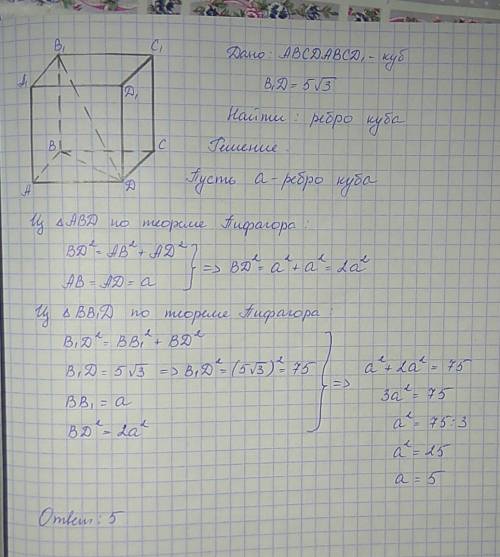 B₁
C₁
Дано: ABCDABCD₁ - куб
A₁
D₁
B₁D = 5√3
Найти: ребро куба
B
C
Решение.
A
D
Пусть a - ребро куба
Из △ABD по теореме Пифагора:
BD² = AB² + AD²
AB = AD = a
=> BD² = a² + a² = 2a²
Из △BB₁D по теореме Пифагора:
B₁D² = BB₁² + BD²
B₁D = 5√3 => B₁D² = (5√3)² = 75
BB₁ = a
BD² = 2a²
=>
a² + 2a² = 75
3a² = 75
a² = 75:3
a² = 25
a = 5
Ответ: 5